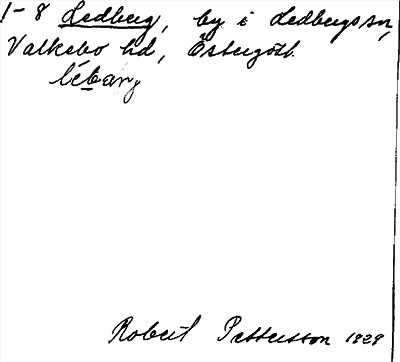 1-8 Ledberg, by i Ledbergs sn,
Valkebo hd, Östergötl.
lébærj
Robert Pettersson 1929